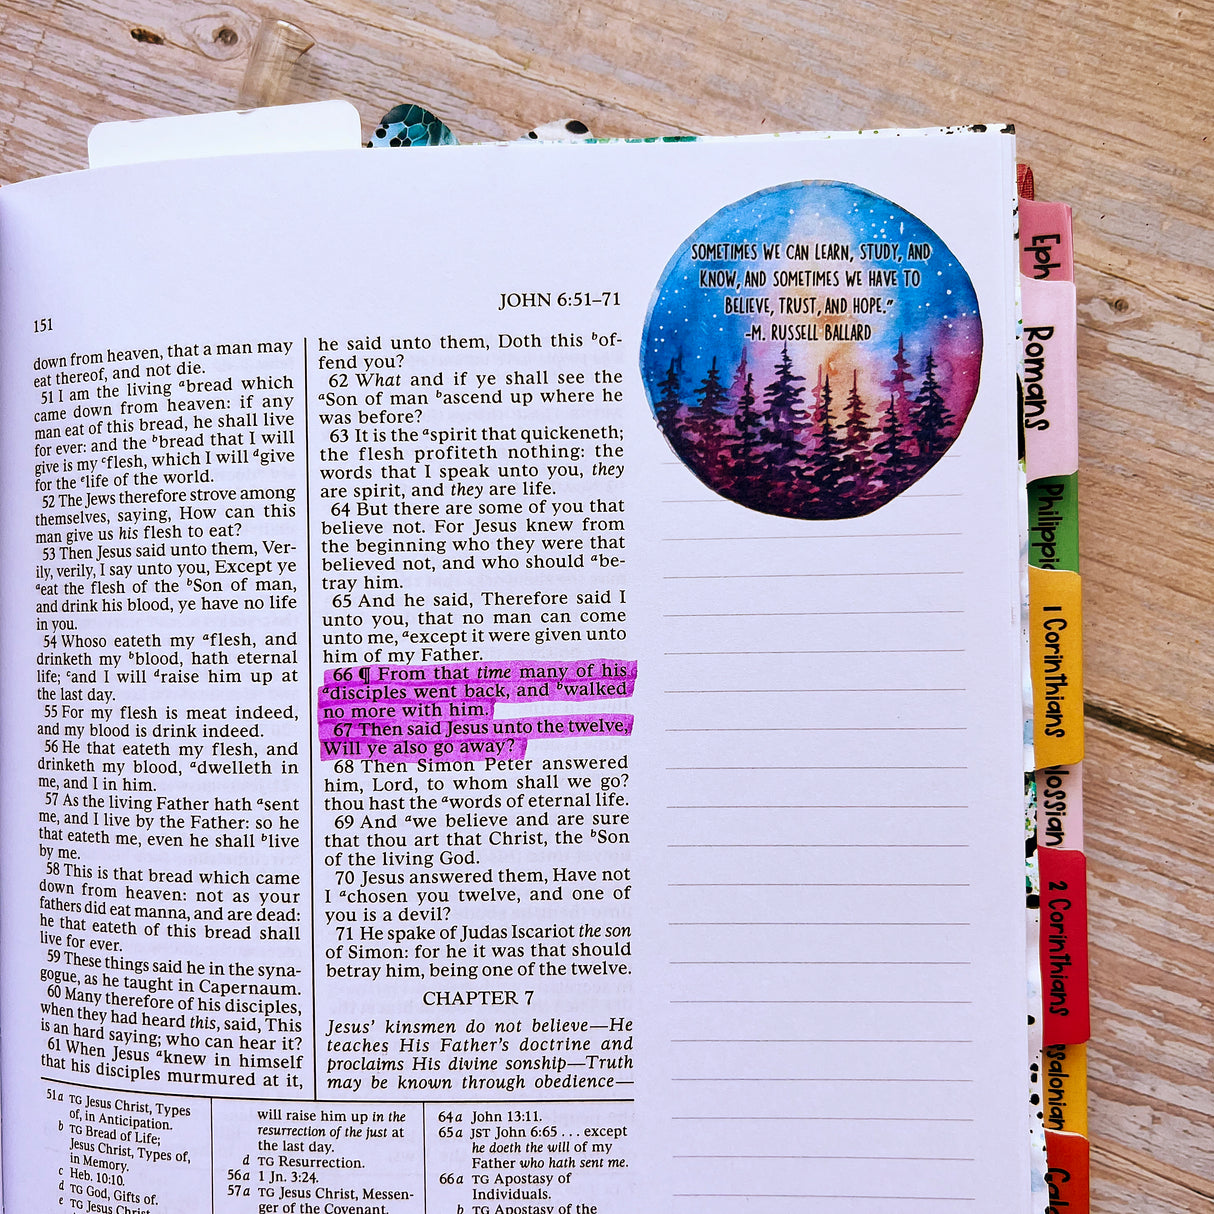 151
JOHN 6:51–71
down from heaven, that a man may
eat thereof, and not die.
51 I am the living ᵃbread which
came down from heaven: if any
man eat of this bread, he shall live
for ever: and the ᵇbread that I will
give is my ᶜflesh, which I will ᵈgive
for the ᵉlife of the world.
52 The Jews therefore strove among
themselves, saying, How can this
man give us his flesh to eat?
53 Then Jesus said unto them, Ver-
ily, verily, I say unto you, Except ye
ᵃeat the flesh of the ᵇSon of man,
and drink his blood, ye have no life
in you.
54 Whoso eateth my ᵃflesh, and
drinketh my ᵇblood, hath eternal
life; ᶜand I will ᵈraise him up at
the last day.
55 For my flesh is meat indeed,
and my blood is drink indeed.
56 He that eateth my flesh, and
drinketh my blood, ᵃdwelleth in
me, and I in him.
57 As the living Father hath ᵃsent
me, and I live by the Father: so he
that eateth me, even he shall ᵇlive
by me.
58 This is that bread which came
down from heaven: not as your
fathers did eat manna, and are dead:
he that eateth of this bread shall
live for ever.
59 These things said he in the syna-
gogue, as he taught in Capernaum.
60 Many therefore of his disciples,
when they had heard this, said, This
is an hard saying; who can hear it?
61 When Jesus ᵃknew in himself
that his disciples murmured at it,
he said unto them, Doth this ᵇof-
fend you?
62 What and if ye shall see the
ᵃSon of man ᵇascend up where he
was before?
63 It is the ᵃspirit that quickeneth;
the flesh profiteth nothing: the
words that I speak unto you, they
are spirit, and they are life.
64 But there are some of you that
believe not. For Jesus knew from
the beginning who they were that
believed not, and who should ᵃbe-
tray him.
65 And he said, Therefore said I
unto you, that no man can come
unto me, ᵃexcept it were given unto
him of my Father.
66 ¶ From that time many of his
ᵃdisciples went back, and ᵇwalked
no more with him.
67 Then said Jesus unto the twelve,
Will ye also go away?
68 Then Simon Peter answered
him, Lord, to whom shall we go?
thou hast the ᵃwords of eternal life.
69 And ᵃwe believe and are sure
that thou art that Christ, the ᵇSon
of the living God.
70 Jesus answered them, Have not
I ᵃchosen you twelve, and one of
you is a devil?
71 He spake of Judas Iscariot the son
of Simon: for he it was that should
betray him, being one of the twelve.
CHAPTER 7
Jesus' kinsmen do not believe—He
teaches His Father's doctrine and
proclaims His divine sonship—Truth
may be known through obedience—
51a TG Jesus Christ, Types
of, in Anticipation.
b TG Bread of Life;
Jesus Christ, Types of,
in Memory.
c Heb. 10:10.
d TG God, Gifts of.
e TG Jesus Christ,
will raise him up in the
resurrection of the just at
the last day.
d TG Resurrection.
56a 1 Jn. 3:24.
57a TG Jesus Christ, Messen-
ger of the Covenant.
64a John 13:11.
65a JST John 6:65 . . . except
he doeth the will of my
Father who hath sent me.
66a TG Apostasy of
Individuals.
b TG Apostasy of the
SOMETIMES WE CAN LEARN, STUDY, AND
KNOW, AND SOMETIMES WE HAVE TO
BELIEVE, TRUST, AND HOPE."
-M. RUSSELL BALLARD
Eph
Romans
Philippi
1 Corinthians
lossian
2 Corinthians
ssalonian
Gala